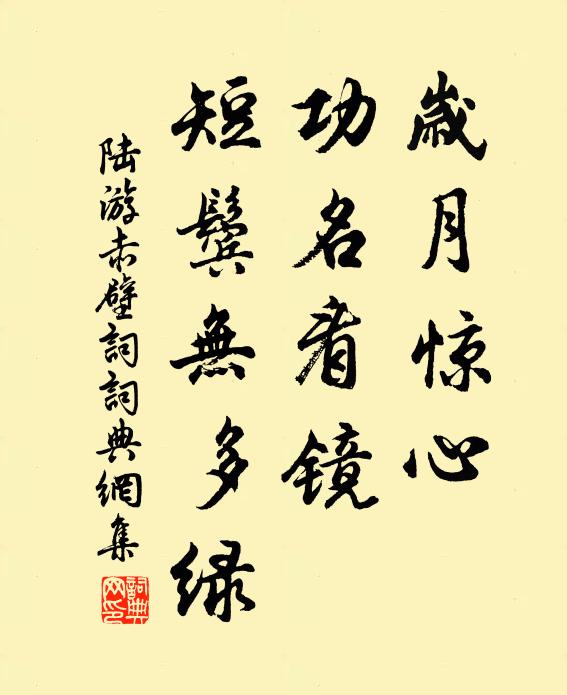 歲月惊心
功名看镜
短鬓無多绿
陆游赤壁詞詞典網集
詞典網印